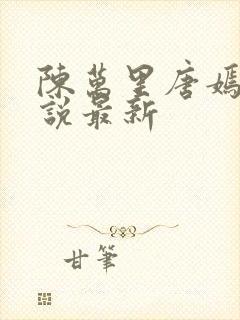 陳萬里唐嫣
說最新
甘筆